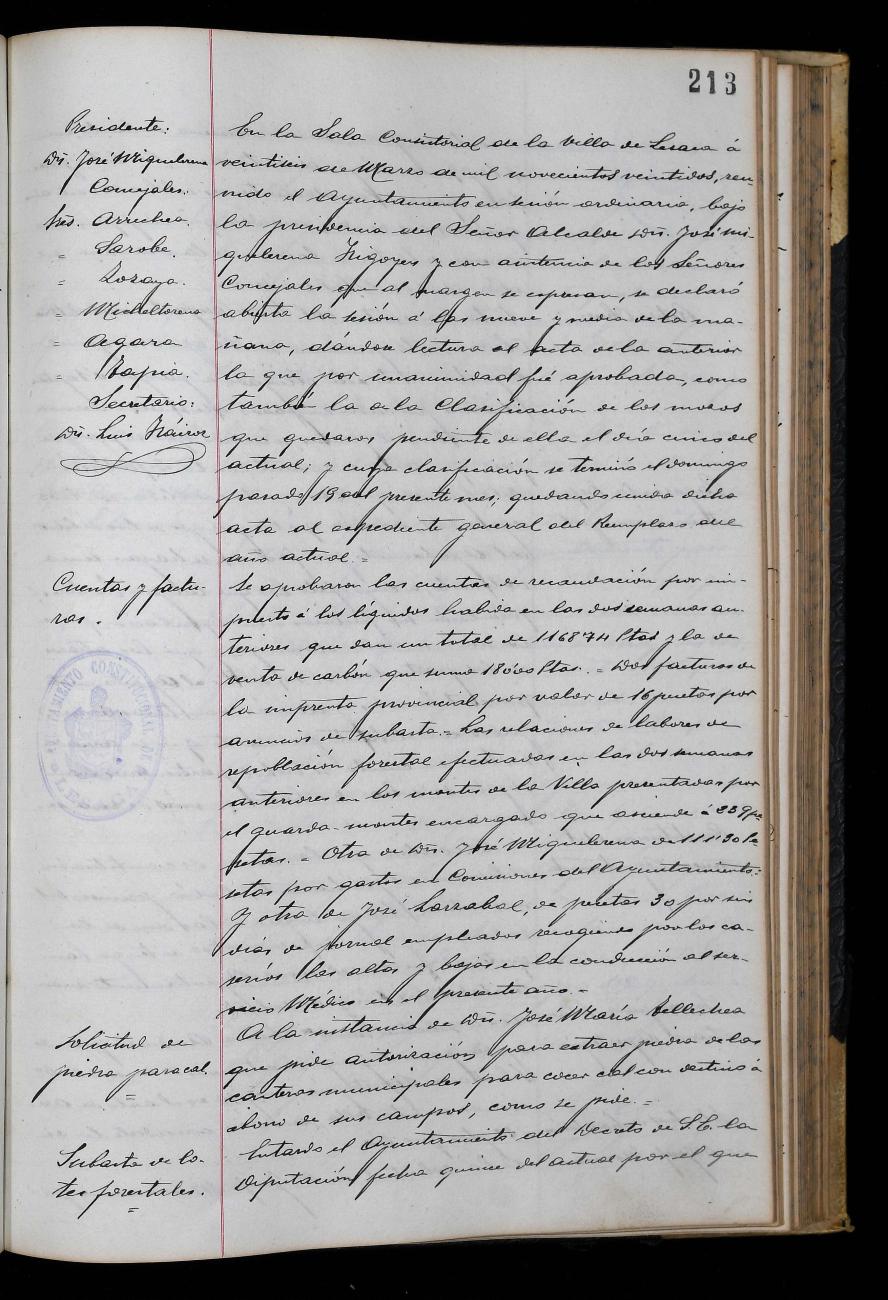 213
Presidente:
Dn. José Miguelerena
Concejales:
Sres. Arrechea.
" Sarobe.
" Lozaya.
" Micheltorena
" Agara
" Tapia.
Secretario:
Dn. Luis
En la Sala Consistorial de la Villa de Lesaca á
veintiseis de Marzo de mil novecientos veintidos, reu-
nido el Ayuntamiento en sesión ordinaria, bajo
la presidencia del Señor Alcalde Dn. José Mi-
guelerena Irigoyen y con asistencia de los Señores
Concejales que al margen se expresan, se declaró
abierta la sesión á las nueve y media de la ma-
ñana, dándose lectura al acta de la anterior
la que por unanimidad fué aprobada, como
también la de la Clasificación de los mozos
que quedaron pendiente de ella el día cinco del
actual; y cuya clasificación se terminó el domingo
pasado 19 del presente mes; quedando unida dicha
acta al expediente general del Reemplazo del
año actual. =
Cuentas y factu-
ras.
Se aprobaron las cuentas de recaudación por im-
puesto á los líquidos habida en las dos semanas an-
teriores que dan un total de 1168'74 Ptas y la de
venta de carbón que suma 180'00 Ptas. = Dos facturas de
la imprenta provincial por valor de 16 pesetas por
anuncios de subasta. = Las relaciones de labores de
repoblación forestal efectuadas en las dos semanas
anteriores en los montes de la Villa presentadas por
el guarda-montes encargado que asciende á 339 pe-
setas. = Otra de Dn. José Miguelerena de 111'30 Pe-
setas por gastos en Comisiones del Ayuntamiento:
Y otra de José Larzabal, de pesetas 30 por seis
días de jornal empleados recogiendo por los ca-
seríos las altas y bajas en la conducción al ser-
vicio Médico en el presente año. =
Solicitud de
piedra para cal.
=
A la instancia de Dn. José María Tellechea
que pide autorización para extraer piedra de las
canteras municipales para cocer cal con destino á
abono de sus campos, como se pide. =
Subasta de lo-
tes forestales.
=
Enterado el Ayuntamiento del Decreto de S.E. la
Diputación fecha quince del actual por el que
AYUNTAMIENTO CONSTITUCIONAL DE LESACA